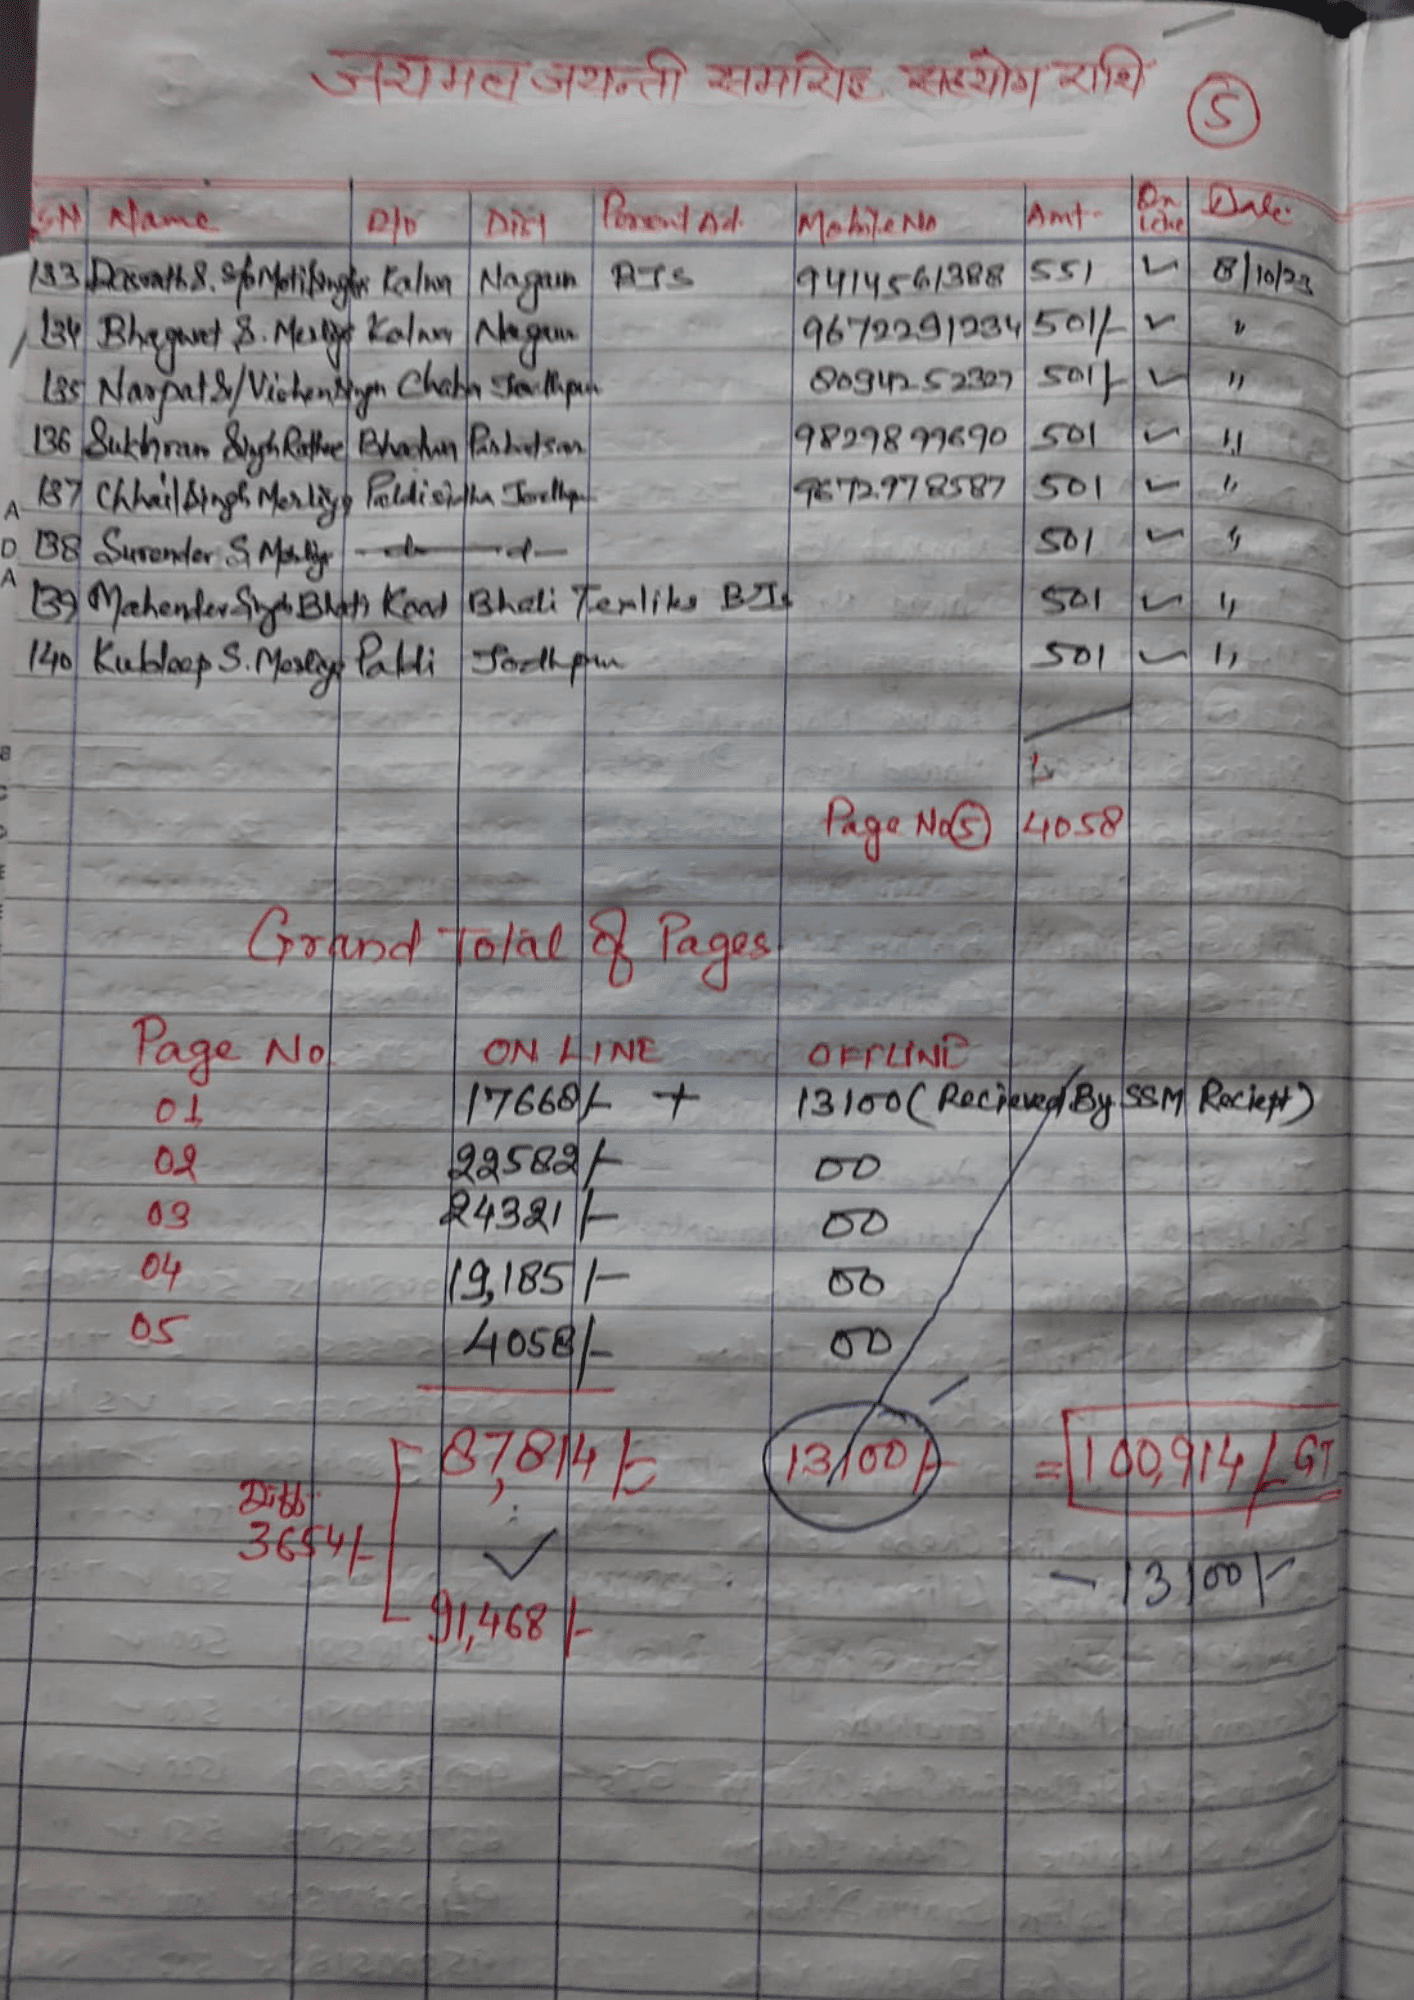 जयमल जयन्ती समारोह सहयोग राशि 5
SN Name Dist Present Ad. Mobile No Amt. On line Date
133 Dasrath S. S/o Moti Singh Kalna Nagaur BJS 9414561388 551 ✓ 8/10/23
134 Bhagwat S. Kalna Nagaur 9672291234 501/- ✓ "
135 Narpat S/ Jodhpur 8094252327 501/- ✓ "
136 Sukhram Singh Rathore Parbatsar 9829899690 501 ✓ "
137 Chhail Singh Jodhpur 9672978587 501 ✓ "
138 Surender S 501 ✓ "
139 Mahender Singh Bhati BJS 501 ✓ "
140 Kuldeep S. Paldi Jodhpur 501 ✓ "
Page No 5 4058
Grand Total of Pages
Page No ON LINE OFFLINE
01 17668/- + 13100 ( Recieved By SSM Reciept )
02 22582/- 00
03 24321/- 00
04 19,185/- 00
05 4058/- 00
87,814/- 13100/- = 100,914/- GT
Diff.
3654/- ✓ - 13100/-
91,468/-